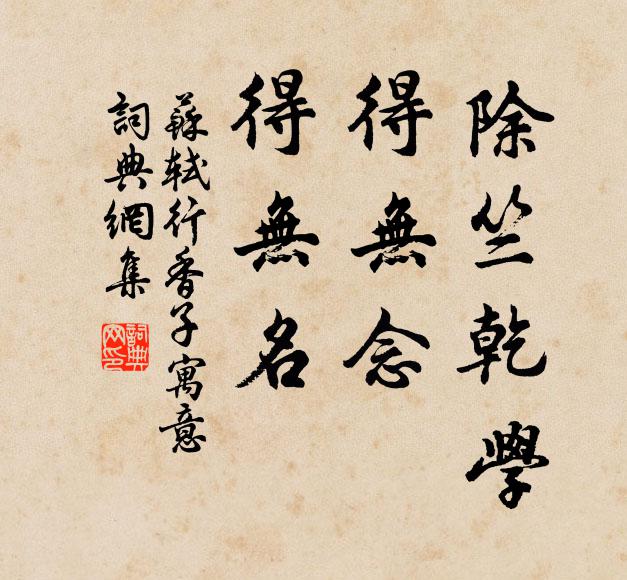 除竺乾學
得無念
得無名
蘇軾行香子寓意
詞典網集
詞典网印